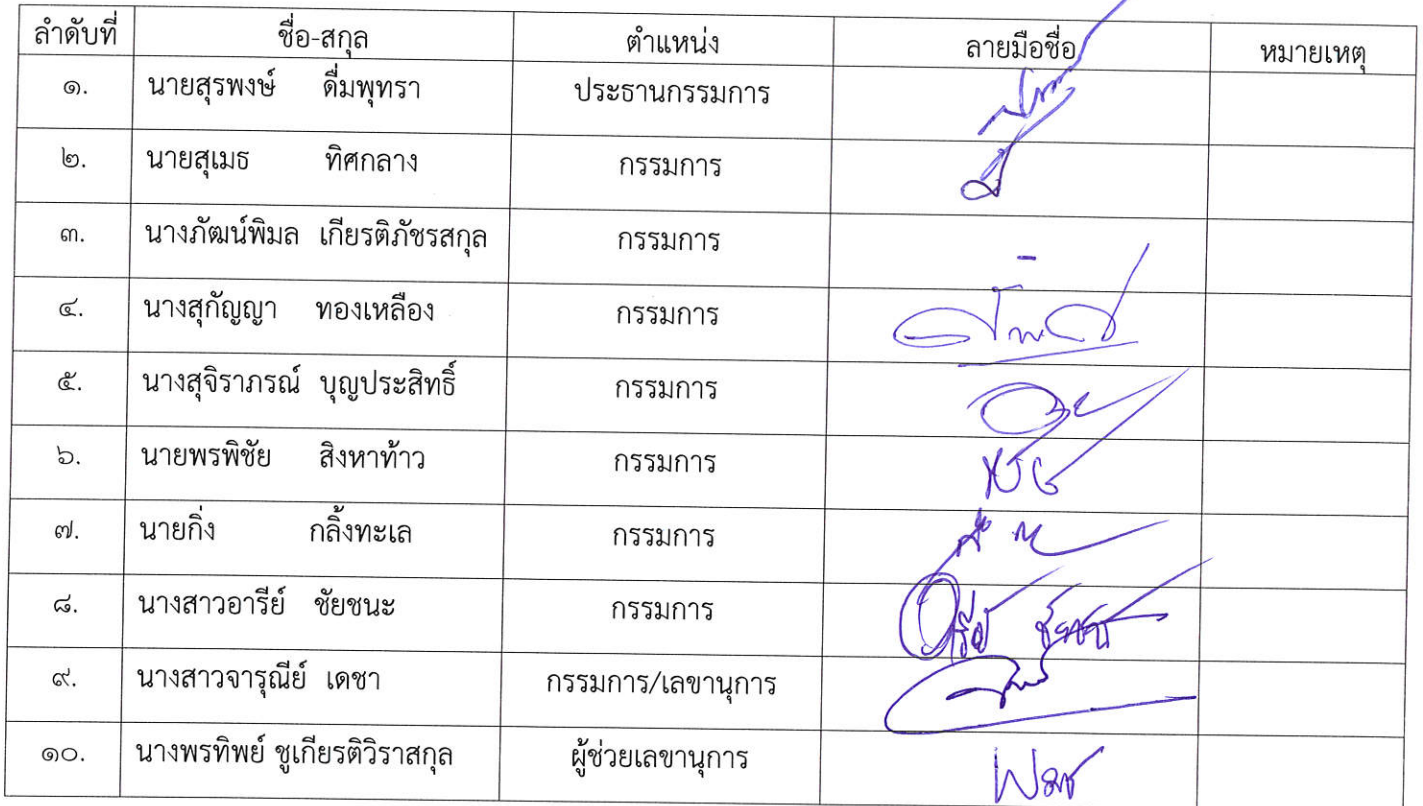 ลำดับที่ ชื่อ-สกุล ตำแหน่ง ลายมือชื่อ หมายเหตุ
๑. นายสุรพงษ์ ดื่มพุทรา ประธานกรรมการ
๒. นายสุเมธ ทิศกลาง กรรมการ
๓. นางภัฒน์พิมล เกียรติภัชรสกุล กรรมการ -
๔. นางสุกัญญา ทองเหลือง กรรมการ
๕. นางสุจิราภรณ์ บุญประสิทธิ์ กรรมการ
๖. นายพรพิชัย สิงหาท้าว กรรมการ
๗. นายกิ่ง กลิ้งทะเล กรรมการ
๘. นางสาวอารีย์ ชัยชนะ กรรมการ
๙. นางสาวจารุณีย์ เดชา กรรมการ/เลขานุการ
๑๐. นางพรทิพย์ ชูเกียรติวิราสกุล ผู้ช่วยเลขานุการ